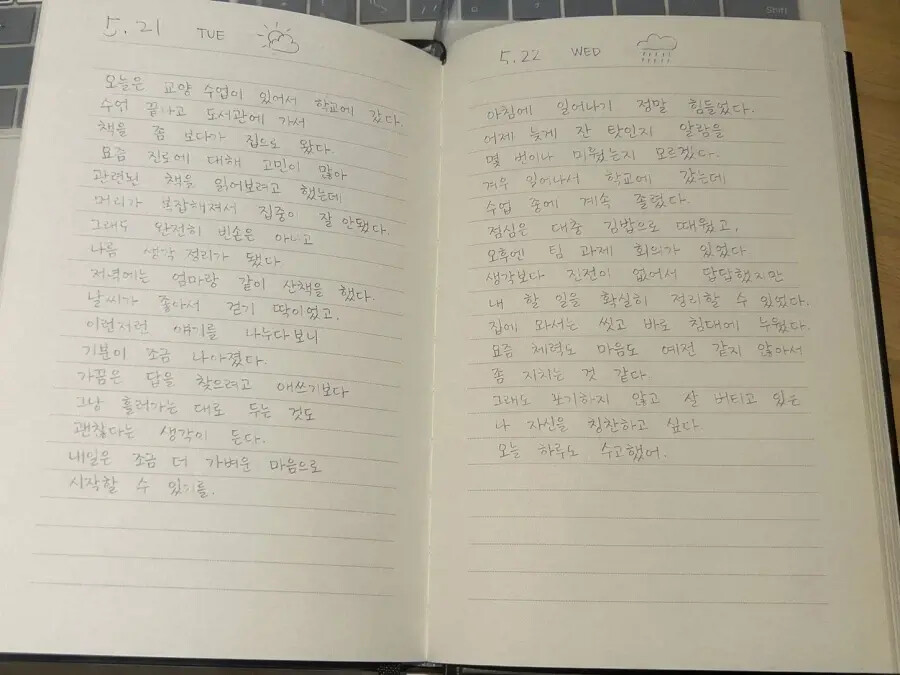 5.21 TUE
오늘은 교양 수업이 있어서 학교에 갔다.
수업 끝나고 도서관에 가서
책을 좀 보다가 집으로 왔다.
요즘 진로에 대해 고민이 많아
관련된 책을 읽어보려고 했는데
머리가 복잡해져서 집중이 잘 안됐다.
그래도 완전히 빈손은 아니고
나름 생각 정리가 됐다.
저녁에는 엄마랑 같이 산책을 했다.
날씨가 좋아서 걷기 딱이었고,
이런저런 얘기를 나누다보니
기분이 조금 나아졌다.
가끔은 답을 찾으려고 애쓰기보다
그냥 흘러가는 대로 두는 것도
괜찮다는 생각이 든다.
내일은 조금 더 가벼운 마음으로
시작할 수 있기를.
5.22 WED
아침에 일어나기 정말 힘들었다.
어제 늦게 잔 탓인지 알람을
몇 번이나 미뤘는지 모르겠다.
겨우 일어나서 학교에 갔는데
수업 중에 계속 졸렸다.
점심은 대충 김밥으로 때웠고,
오후엔 팀 과제 회의가 있었다
생각보다 진전이 없어서 답답했지만
내 할 일을 확실히 정리할 수 있었다.
집에 와서는 씻고 바로 침대에 누웠다.
요즘 체력도 마음도 예전 같지 않아서
좀 지치는 것 같다.
그래도 포기하지 않고 잘 버티고 있는
나 자신을 칭찬하고 싶다.
오늘 하루도 수고했어.
Shift